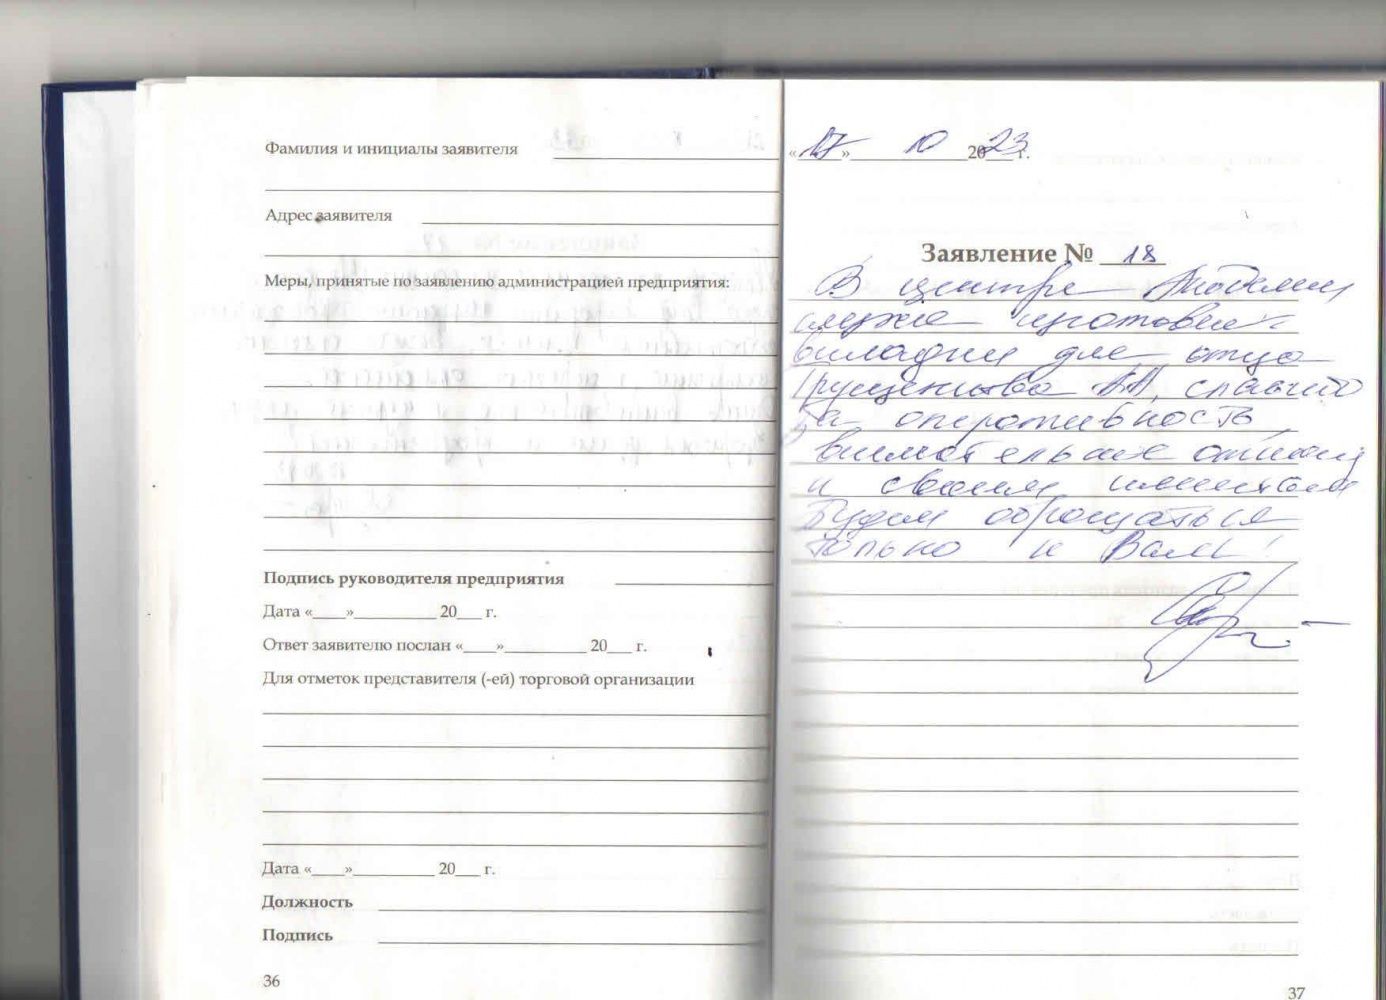 Фамилия и инициалы заявителя
Адрес заявителя
Меры, принятые по заявлению администрацией предприятия:
Подпись руководителя предприятия
Дата «____»__________ 20___ г.
Ответ заявителю послан «____»__________ 20___ г.
Для отметок представителя (-ей) торговой организации
Дата «____»__________ 20___ г.
Должность
Подпись
36
«17» 10 2023 г.
Заявление № 18
В центре
слуха изготовили
вкладыш для отца
спасибо
за оперативность,
внимательное
к своим клиентам
Будем обращаться
только к Вам!
37